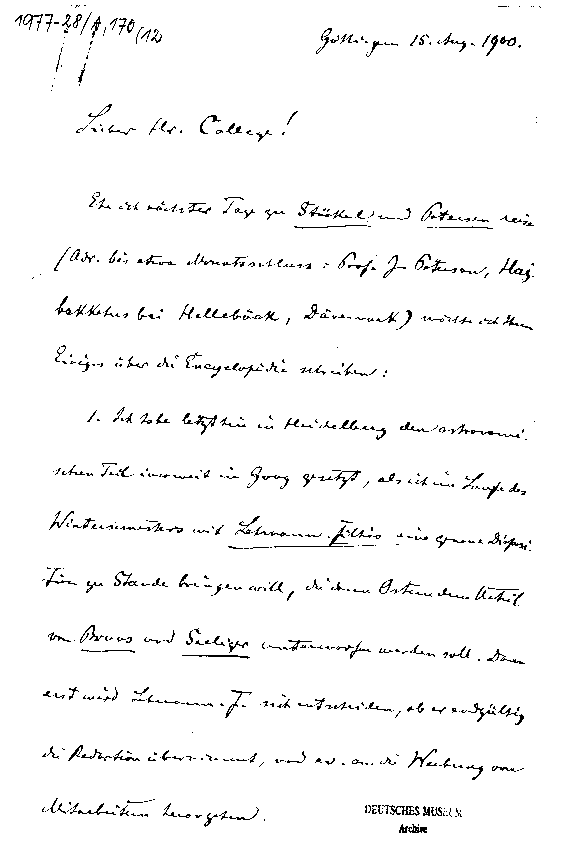 1977-28/A,170 (12)
Göttingen 15. Aug. 1900.
Lieber Hr. College!
Ehe ich nächster Tage zu Stäckel und Petersen reise
(Adr. bis etwa Monatsschluss: Prof. J. Petersen, Høj-
bakkehus bei Hellebäck, Dänemark) möchte ich Ihnen
Einiges über die Encyclopädie schreiben:
1. Ich habe letzthin in Heidelberg den astronomi-
schen Teil insoweit in Gang gesetzt, als ich im Laufe des
Wintersemesters mit Lehmann-Filhés eine genaue Disposi-
tion zu Stande bringen will, die dann Ostern dem Urteil
von Bruns und Seeliger unterworfen werden soll. Dann
erst wird Lehmann-F. sich entscheiden, ob er endgültig
die Redaction übernimmt, und ev. an die Werbung von
Mitarbeitern herangehen.
DEUTSCHES MUSEUM
Archive